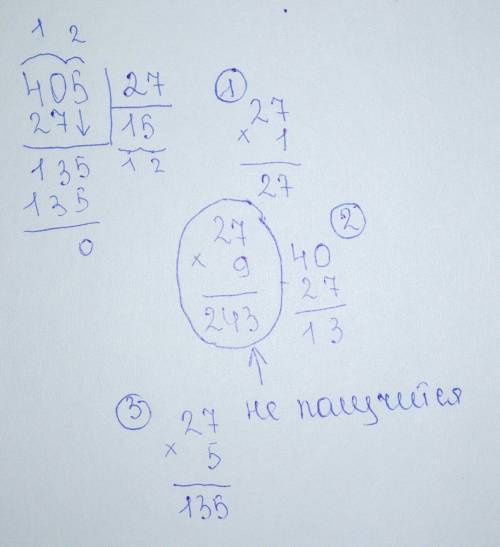 1 2
405 27
27↓ 15
135 1 2
135
0
①
27
× 1
27
27
× 9
243
②
40
- 27
13
не получится
③
27
× 5
135